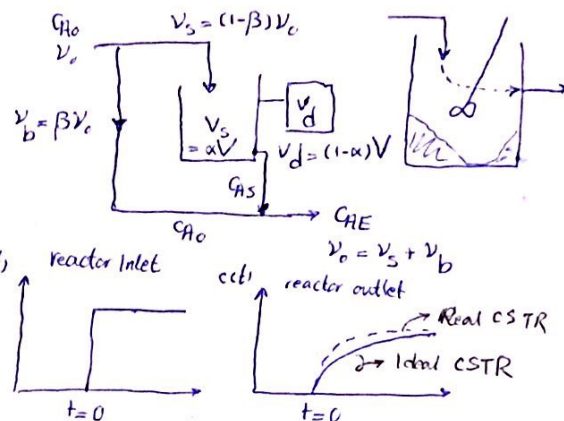 C_A0 ν_s = (1-β)ν_0
ν_0
ν_b = βν_0
V_s
= αV
V_d
V_d = (1-α)V
C_AS
C_A0
C_AE
ν_0 = ν_s + ν_b
reactor Inlet
c(t) reactor outlet
Real CSTR
Ideal CSTR
t=0
t=0